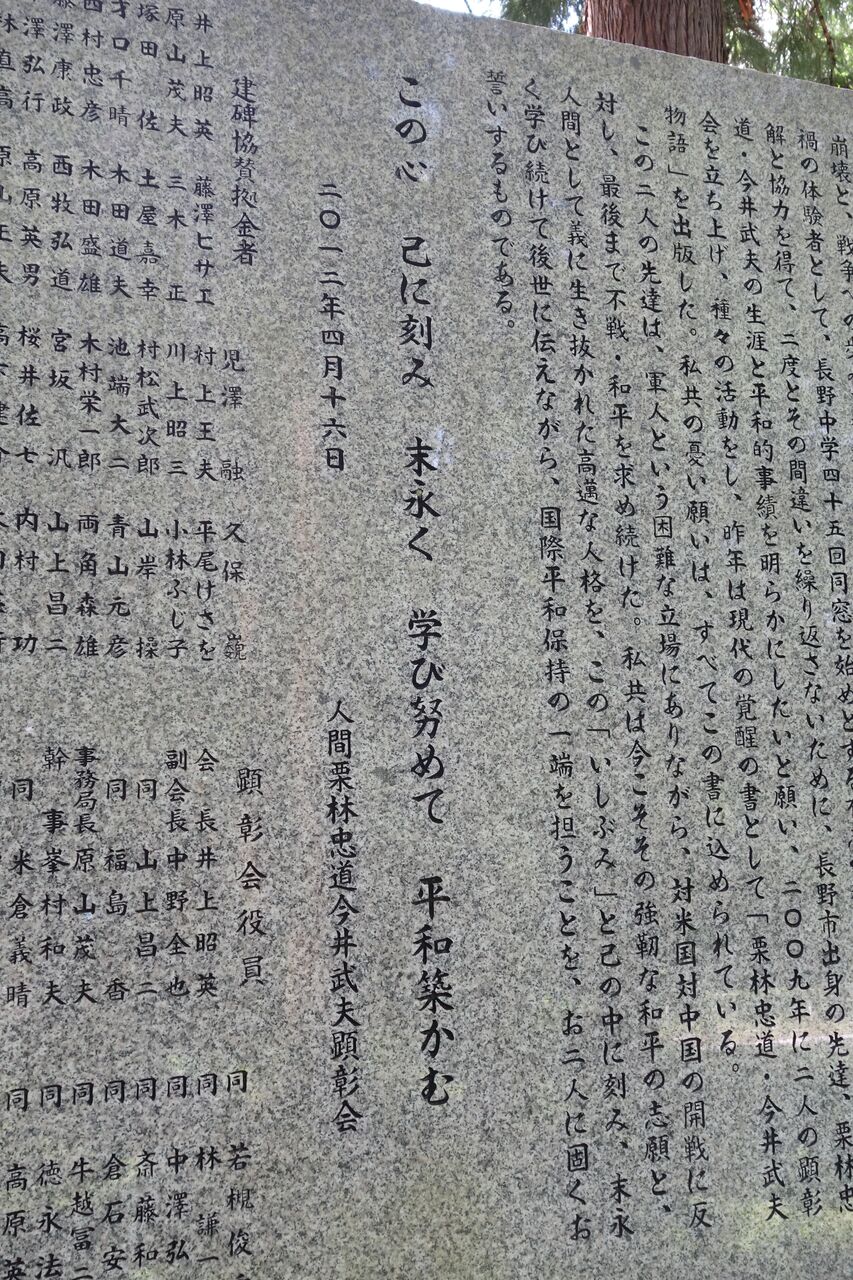 崩壊と、戦争への
禍の体験者として、長野中学四十五回同窓を始めとする
解と協力を得て、二度とその間違いを繰り返さないために、長野市出身の先達、栗林忠
道・今井武夫の生涯と平和的事績を明らかにしたいと願い、二〇〇九年に二人の顕彰
会を立ち上げ、種々の活動をし、昨年は現代の覚醒の書として「栗林忠道・今井武夫
物語」を出版した。私共の憂い願いは、すべてこの書に込められている。
この二人の先達は、軍人という困難な立場にありながら、対米国対中国の開戦に反
対し、最後まで不戦・和平を求め続けた。私共は今こそその強靭な和平の志願と、
人間として義に生き抜かれた高邁な人格を、この「いしぶみ」と己の中に刻み、末永
く学び続けて後世に伝えながら、国際平和保持の一端を担うことを、お二人に固くお
誓いするものである。
この心 己に刻み 末永く 学び努めて 平和築かむ
二〇一二年四月十六日
人間栗林忠道今井武夫顕彰会
建碑協賛拠金者
児澤融 久保巍
井上昭英 藤澤ヒサエ 村上王夫 平尾けさを
原山茂夫 三木正 川上昭三 小林ふじ子
塚田佐 土屋嘉幸 村松武次郎 山岸操
才口千晴 木田道夫 池端大二 青山元彦
西村忠彦 木田盛雄 木村栄一郎 両角森雄
藤澤康政 西牧弘道 宮坂汎 山上昌二
澤弘行 高原英男 桜井佐七 内村功
顕彰会役員
同 若槻俊
会長 井上昭英 同 林謙一
副会長 中野全也 同 中澤弘
同 山上昌二 同 斎藤和
同 福島香 同 倉石安
事務局長 原山茂夫 同 牛越冨二
幹事 峯村和夫 同 徳永法
同 米倉義晴 同 高原英